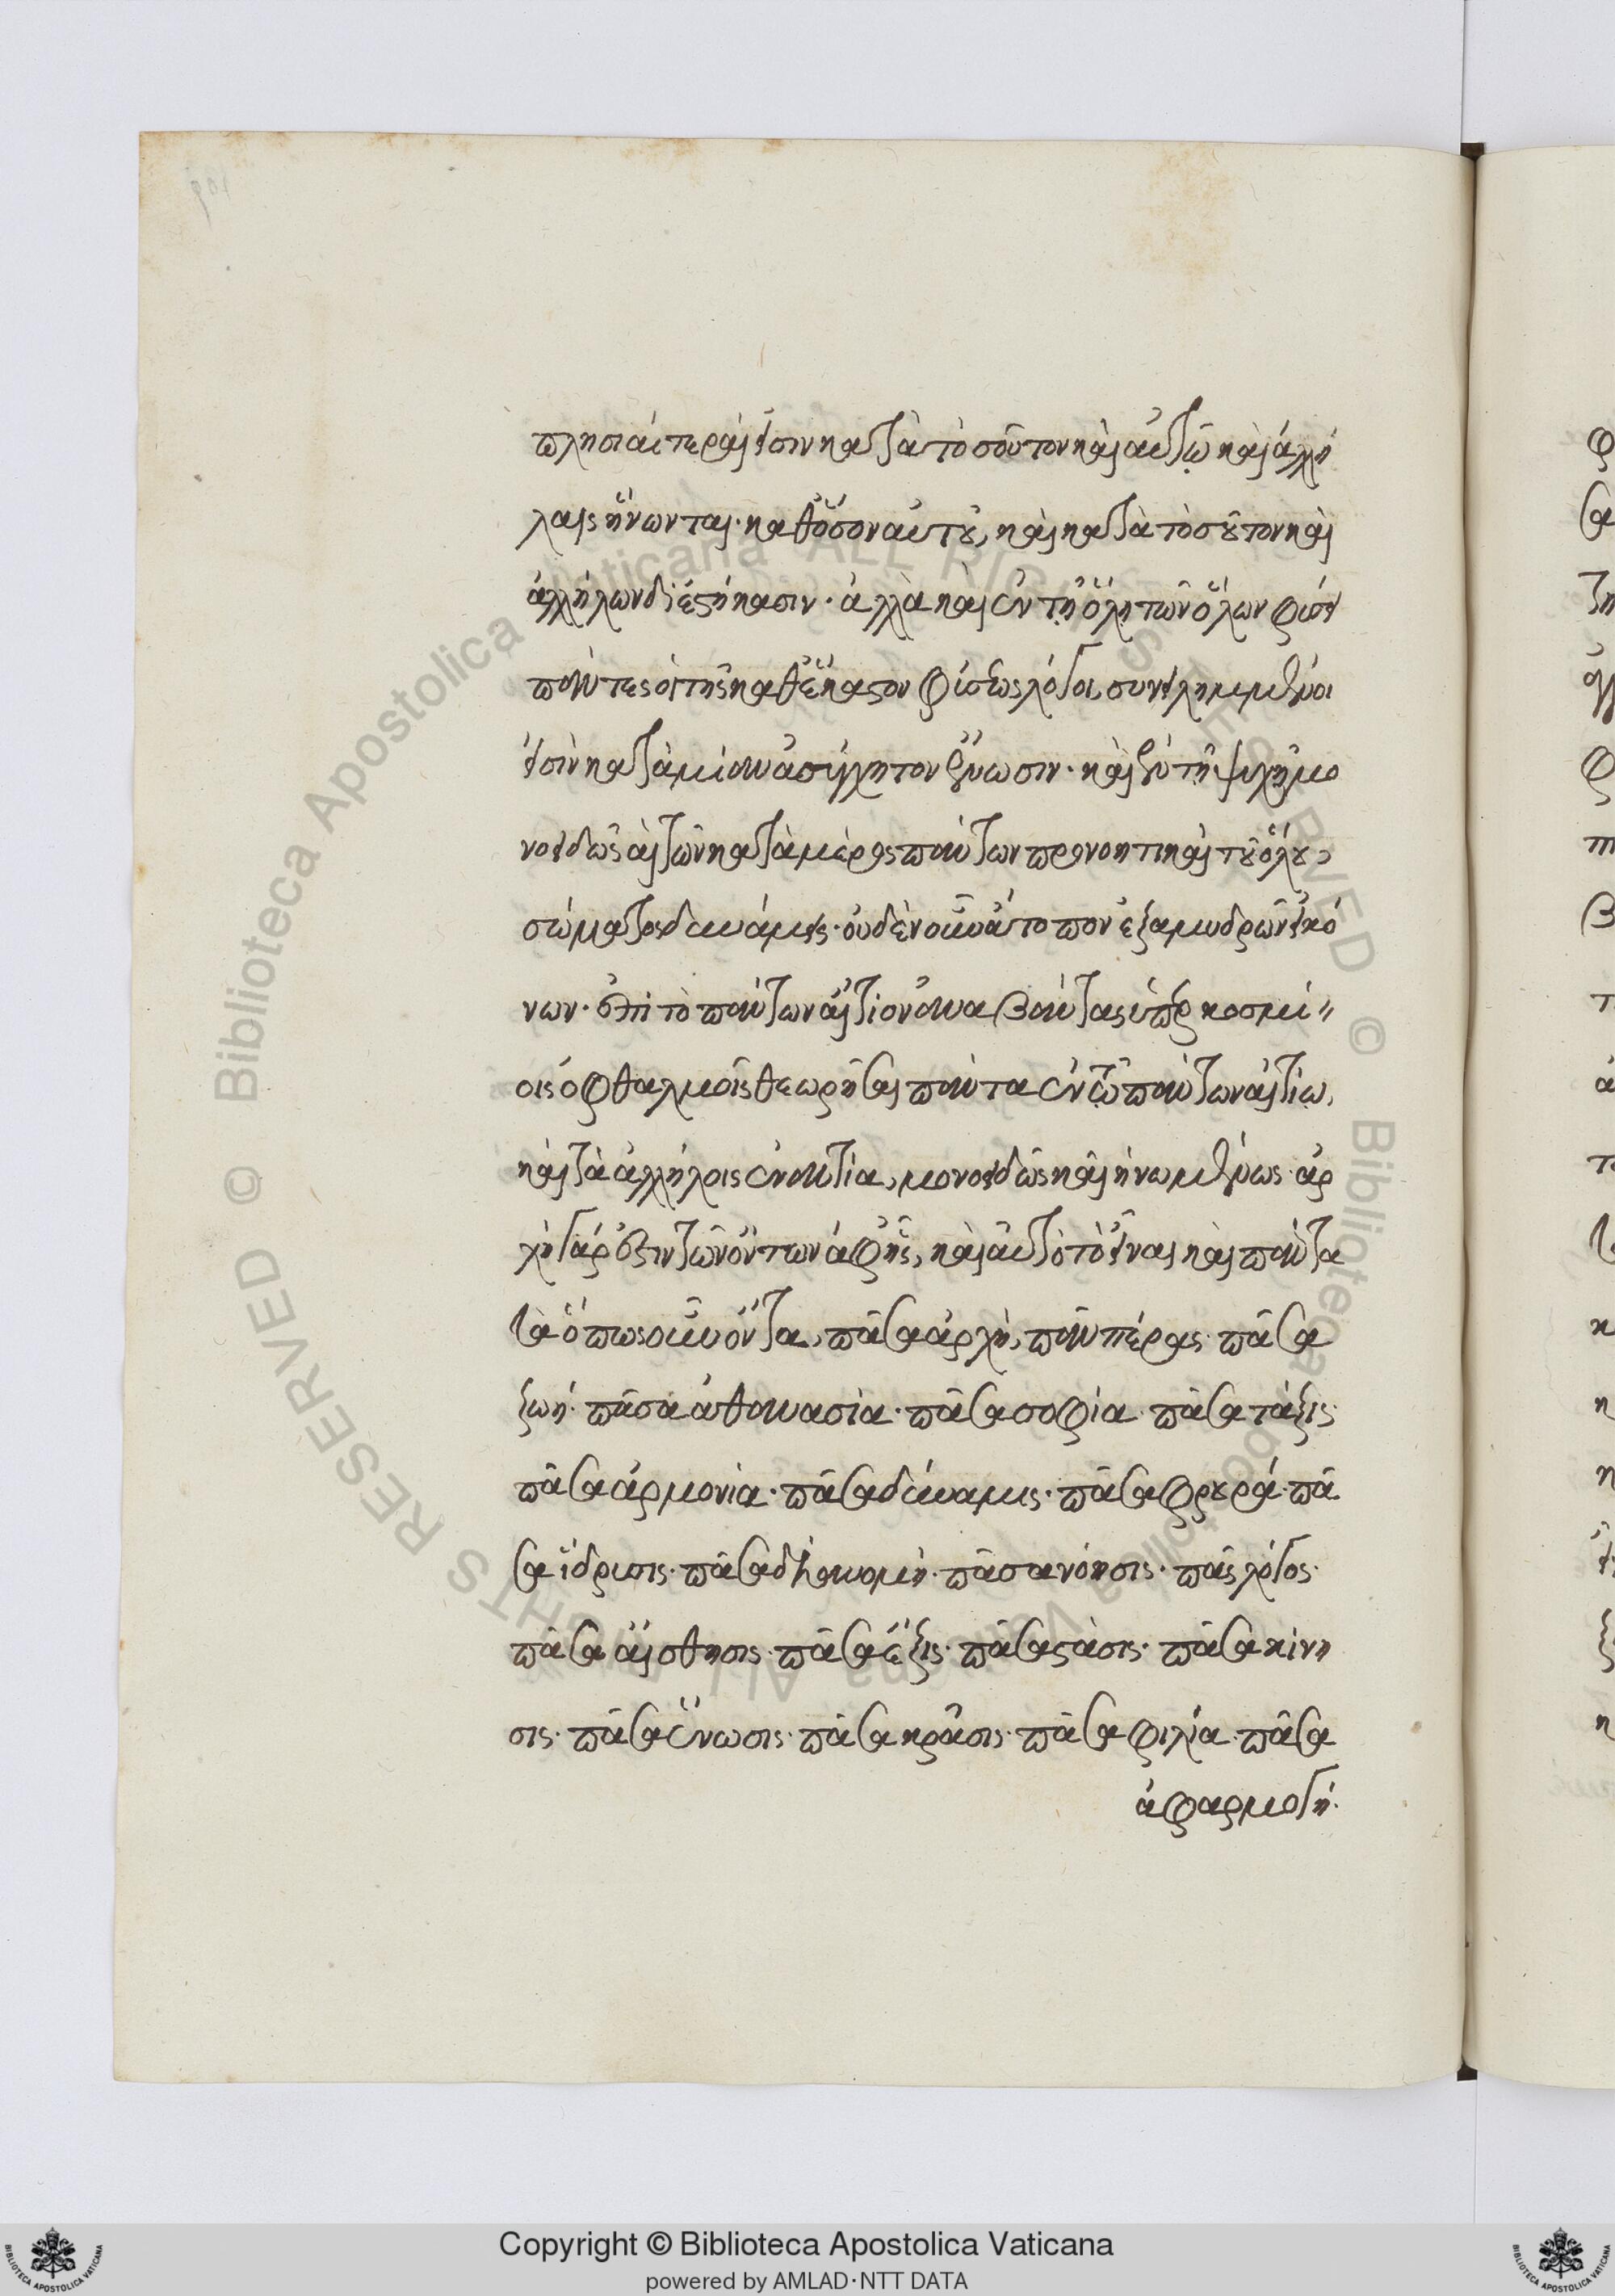 πλησιαίτεραι εἰσιν κατὰ τὸσοῦτον καὶ αὐτῷ καὶ ἀλλή
λαις ἥνωνται· καθόσον αὐτοῦ, καὶ κατὰ τὸσοῦτον καὶ
ἀλλήλων διεστήκασιν· ἀλλὰ καὶ ἐν τῇ ὅλῃ τῶν ὅλων φύσει
πάντες οἱ τῆς καθ' ἕκαστον φύσεως λόγοι, συνειλημμένοι
εἰσὶν κατὰ μίαν ἀσύγχητον ἕνωσιν· καὶ ἐν τῇ ψυχῇ μο
νοειδῶς αἱ τῶν κατὰ μέρος πάντων προνοητικαὶ τοῦ ὅλου
σώματος δυνάμεις· οὐδὲν οὖν ἄτοπον ἐξ ἀμυδρῶν εἰκό
νων· ἐπὶ τὸ πάντων αἴτιον ἀναβάντας ὑπὲρ κοσμί
οις ὀφθαλμοῖς θεωρῆσαι πάντα ἐν τῷ πάντων αἰτίῳ,
καὶ τὰ ἀλλήλοις ἐναντία, μονοειδῶς καὶ ἡνωμένως· ἀρ
χὴ γάρ ἐστιν τῶν ὄντων ἀφ' ἧς, καὶ αὐτὸ τὸ εἶναι καὶ πάντα
τὰ ὅπως οὖν ὄντα, πᾶσα ἀρχὴ, πᾶν πέρας· πᾶσα
ζωή· πᾶσα ἀθανασία· πᾶσα σοφία· πᾶσα τάξις·
πᾶσα ἁρμονία· πᾶσα δύναμις· πᾶσα φρουρά· πᾶ
σα ἵδρυσις· πᾶσα διανομή· πᾶσα νόησις· πᾶς λόγος·
πᾶσα αἴσθησις· πᾶσα ἕξις· πᾶσα στάσις· πᾶσα κίνη
σις· πᾶσα ἕνωσις· πᾶσα κρᾶσις· πᾶσα φιλία· πᾶσα
ἀφαρμογή·
Copyright © Biblioteca Apostolica Vaticana
powered by AMLAD·NTT DATA